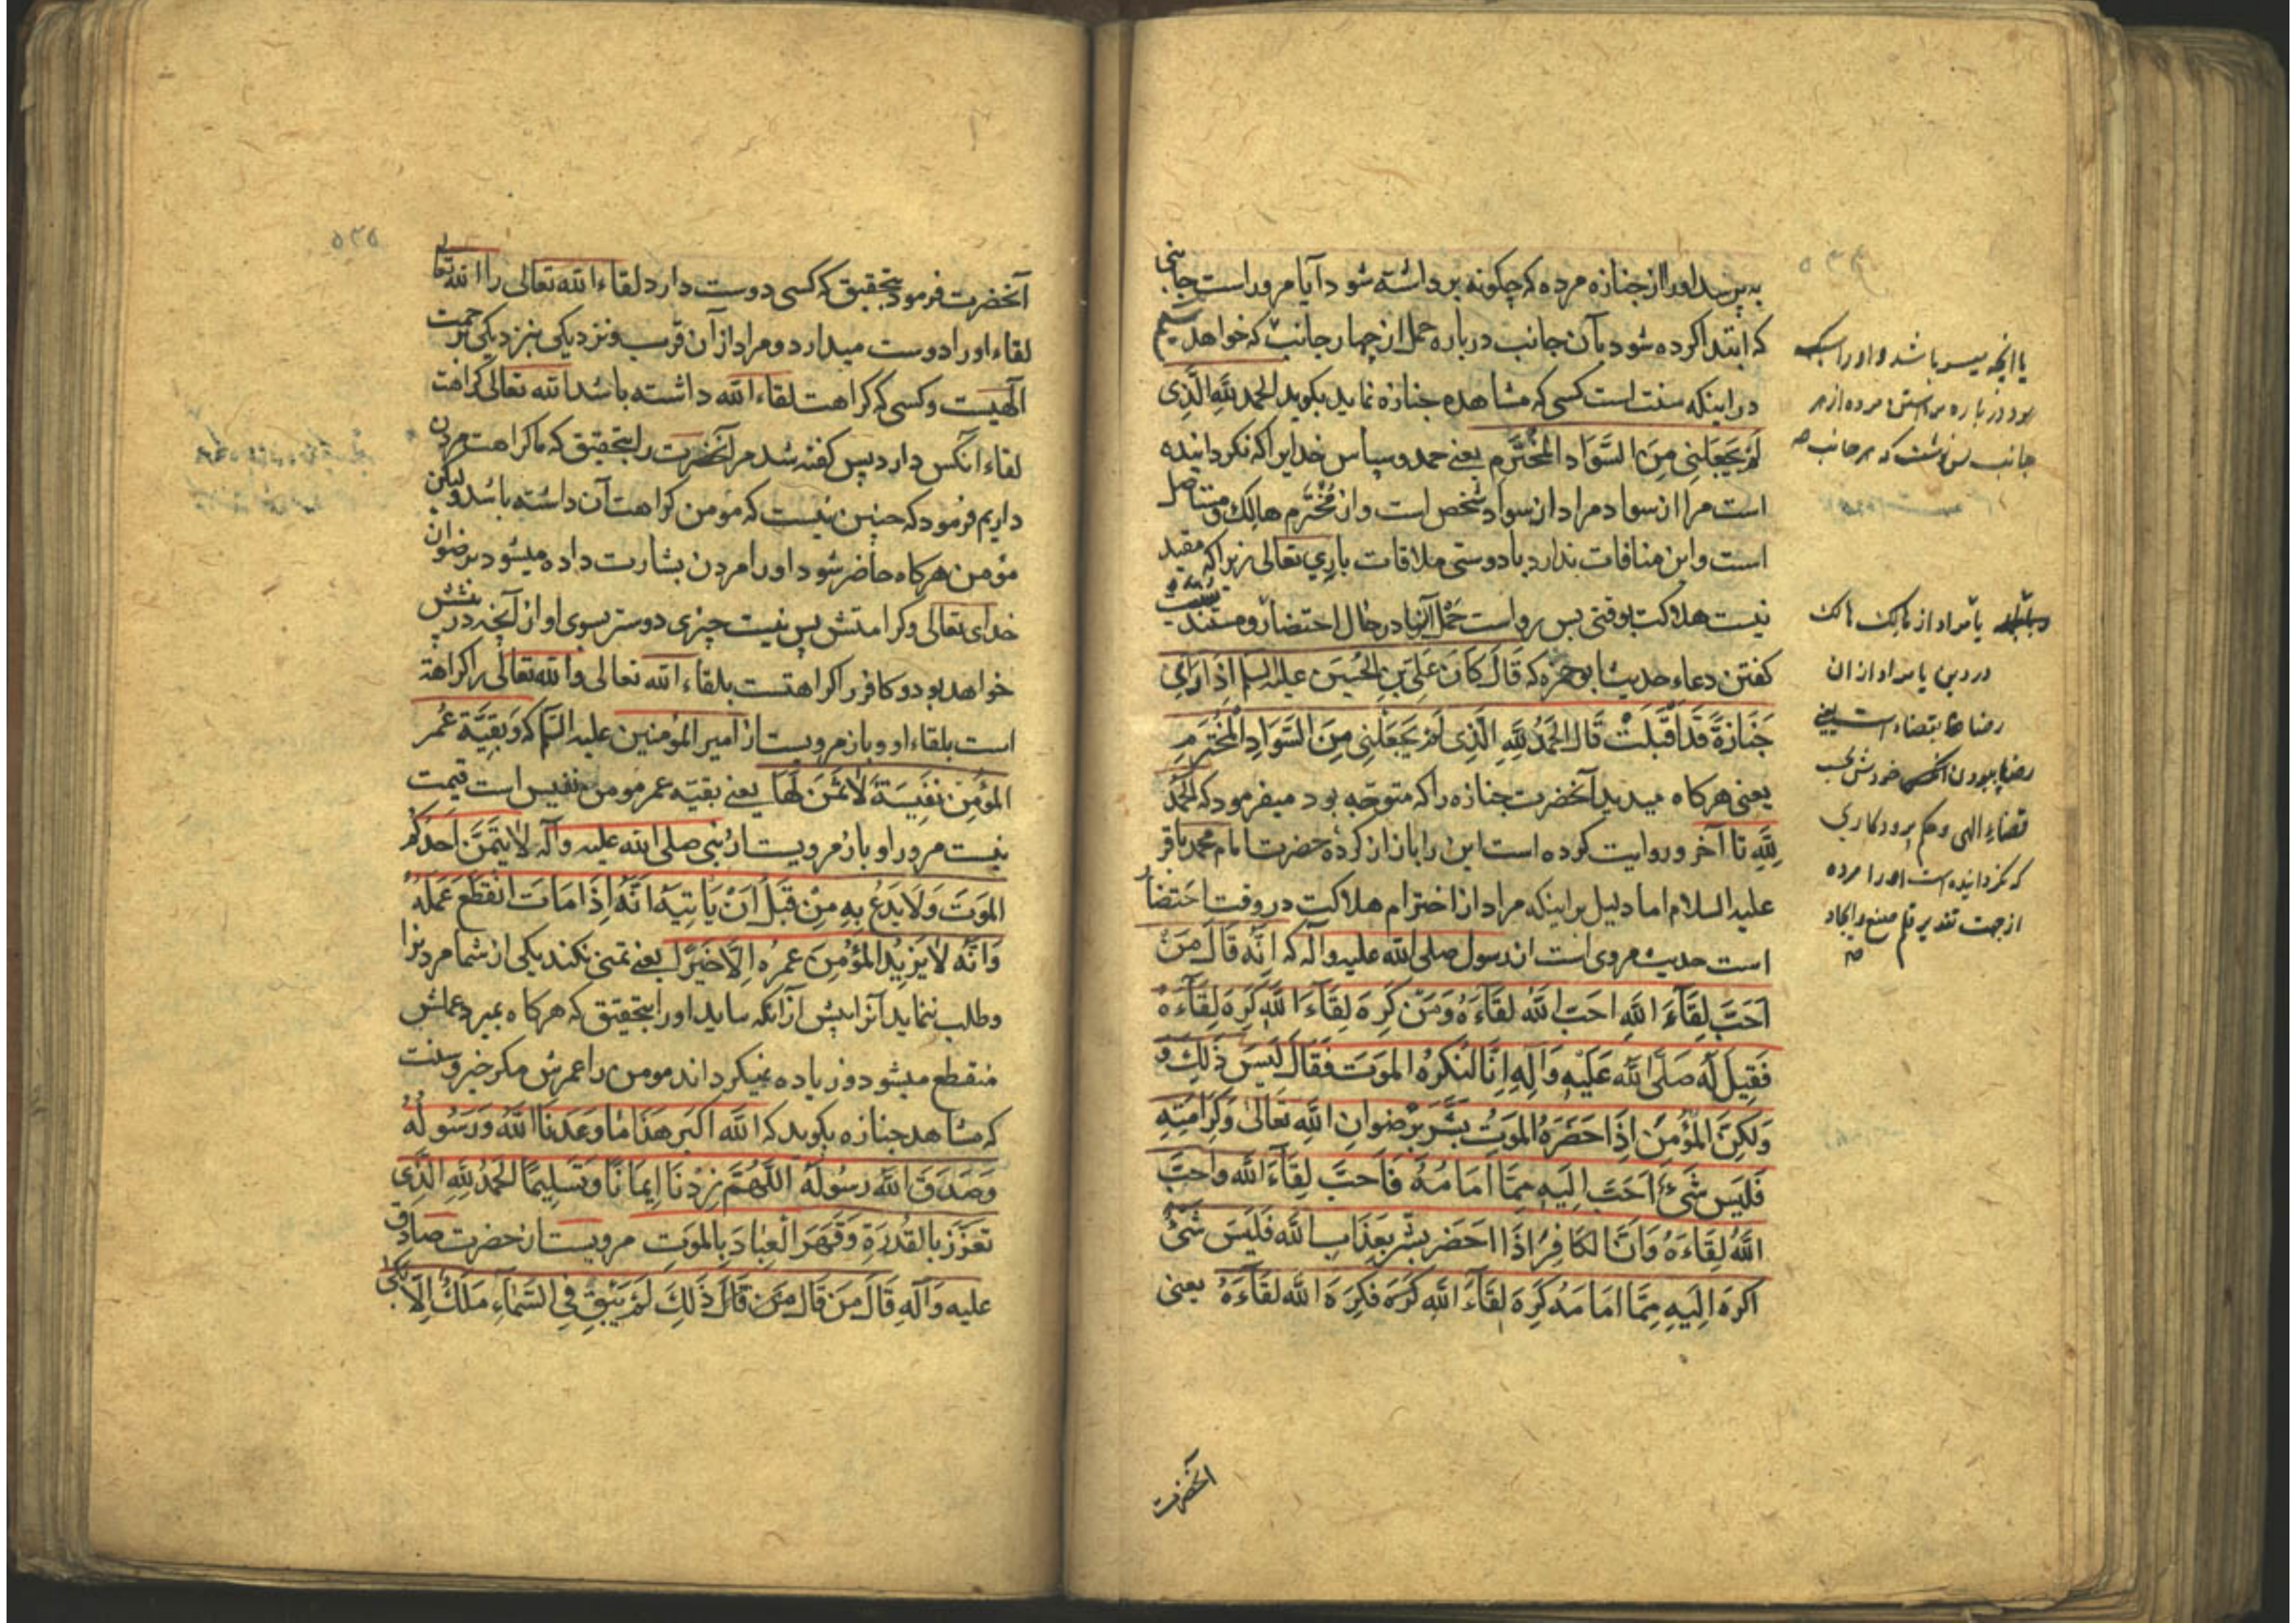 به پرسد اورا از جنازه مرده که چکونه برداشته شود آیا مروراست جانبی
که ابتدا کرده شود بآن جانب درباره حمل از چهار جانب که خواهد
در اینکه سنت است کسی که مشاهده جنازه نماید بکوید الحمد لله الَّذی
لَم یَجعَلنِی مِنَ السَّوَادِ المُختَرَمِ یعنے حمد وسپاس خدایرا که نکردانیده
است مرا از سواد مراد از سواد شخص است و از مُختَرَم هالک ومستاصل
است واین منافات ندارد با دوستی ملاقات باری تعالی زیراکه مقید
نیست هلاکت بوقتی پس رواست حَمل آنها در حال احتضار ومستند
کفتن دعاء حدیث ابو حمزه که قَالَ کَانَ عَلِیّ بنِ الحُسَینِ علیه السلم اِذَا رَایٰ
جَنَازَةً قَد اَقبَلَت قَالَ الحَمدُ لِلّٰهِ الَّذِی لَم یَجعَلنِی مِنَ السَّوَادِ المُختَرَمِ
یعنی هرکاه میدید آنحضرت جنازه را که متوجّه بود میفرمود که الحَمدُ
لِلّٰهِ تا آخر وروایت کرده است این را باز از کرده حضرت امام محمد باقر
علیه السلام اما دلیل براینکه مراد از اخترام هلاکت در وقت احتضار
است حدیث مروی است از رسول صلی الله علیه وآله که اِنَّهُ قَالَ مَن
اَحَبَّ لِقَآءَ اللّٰهِ اَحَبَّ اللّٰهُ لِقَآءَهُ وَمَن کَرِهَ لِقَآءَ اللّٰهِ کَرِهَ لِقَآءَهُ
فَقِیلَ لَهُ صَلَّی اللّٰه عَلَیهِ وَآلِهِ اِنَّا لَنَکرَهُ المَوتَ فَقَالَ لَیسَ ذٰلِکَ
وَلٰکِنَّ المُؤمِنَ اِذَا حَضَرَهُ المَوتُ بُشِّرَ بِرِضوَانِ اللّٰهِ تَعَالیٰ وَکَرَامَتِهِ
فَلَیسَ شَیءٌ اَحَبَّ اِلَیهِ مِمَّا اَمَامَهُ فَاَحَبَّ لِقَآءَ اللّٰه وَاَحَبَّ
اللّٰهُ لِقَآءَهُ وَاَنَّ الکَافِرَ اِذَا احضَرَ بُشِّرَ بِعَذَابِ اللّٰه فَلَیسَ شَیءٌ
اکرَهَ اِلَیهِ مِمَّا اَمَامَهُ کَرِهَ لِقَآءَ اللّٰهِ کَرَهَ فَکَرِهَ اللّٰه لِقَآءَهُ یعنی
آنحضرت
یا انچه میسر باشد واورا
بود درباره برداشتن مرده از هر
جانب هر جانب
یا مراد از هالک هالک
در دین یا مراد از ان
رضا بقضاء است یعنے
رضا خودش بحسب
قضاء الهی وحکم پرورکاری
که نکردانیده است اورا مرده
از جهت تقدیر
آنحضرت فرمود بتحقیق که کسی دوست دارد لقاء الله تعالی را الله تعالی
لقاء اورا دوست میدارد ومراد از آن قرب ونزدیکی بنزدیکی برحمت
آلهیست وکسی که کراهت لقاء الله داشته باشد الله تعالی کراهت
لقاء آنکس دارد پس کفته شد مر آنحضرت را بتحقیق که ما کراهت مردن
داریم فرمود که چنین نیست که مؤمن کراهت آن داشته باشد ولیکن
مؤمن هرکاه حاضر شود اورا مردن بشارت داده میشود برضوان
خدای تعالی وکرامتش پس نیست چیزی دوستر بسوی او از آنچه درپیشش
خواهد بود وکافر را کراهتست بلقاء الله تعالی والله تعالی را کراهة
است بلقاء او وباز مرویست از امیر المؤمنین علیه السّلام که وَبَقِیَّةُ عُمرِ
المُؤمِنِ نَفِیسَةٌ لاٰثَمَنَ لَهَا یعنے بقیّه عمر مومن نفیس است قیمت
نیست مرورا وباز مرویست از نبی صلی الله علیه وآله لاٰ یَتَمَنَّ اَحَدُکُم
المَوتَ وَلاَیَدعُ بِهِ مِن قَبلِ اَن یَاتِیَهُ اَنَّهُ اِذَا مَاتَ انقَطَعَ عَمَلُهُ
وَاَنَّهُ لاٰیَزِیدُ المُؤمِنَ عُمرُهُ اِلاَّ خَیرًا یعنے تمنی نکند یکی از شما مردنرا
وطلب ننماید آنرا پیش ازآنکه بیاید اورا بتحقیق که هرکاه بمیرد عملش
منقطع میشود وزیاده نمیکرداند مومن را عمرش مکر خیر وسنت
که مشاهد جنازه بکوید که اللّٰه اکبَر هَذَا مَا وَعَدَنَا اللّٰهُ وَرَسُولُهُ
وَصَدَقَ اللّٰه رَسُولُهُ اللّٰهُمَّ زِدنَا اِیمَانًا وَتَسلِیمًا الحَمدُ لِلّٰهِ الَّذِی
تَعَزَّزَ بِالقُدرَةِ وَقَهَرَ العِبَادَ بِالمَوتِ مرویست از حضرت صادق
علیه وَآلِهِ قَالَ مَن قَالَ مَن قَالَ ذٰلِکَ لَم یَبقِ فِی السَّمَآءِ مَلَکٌ اِلَّا بَکیٰ